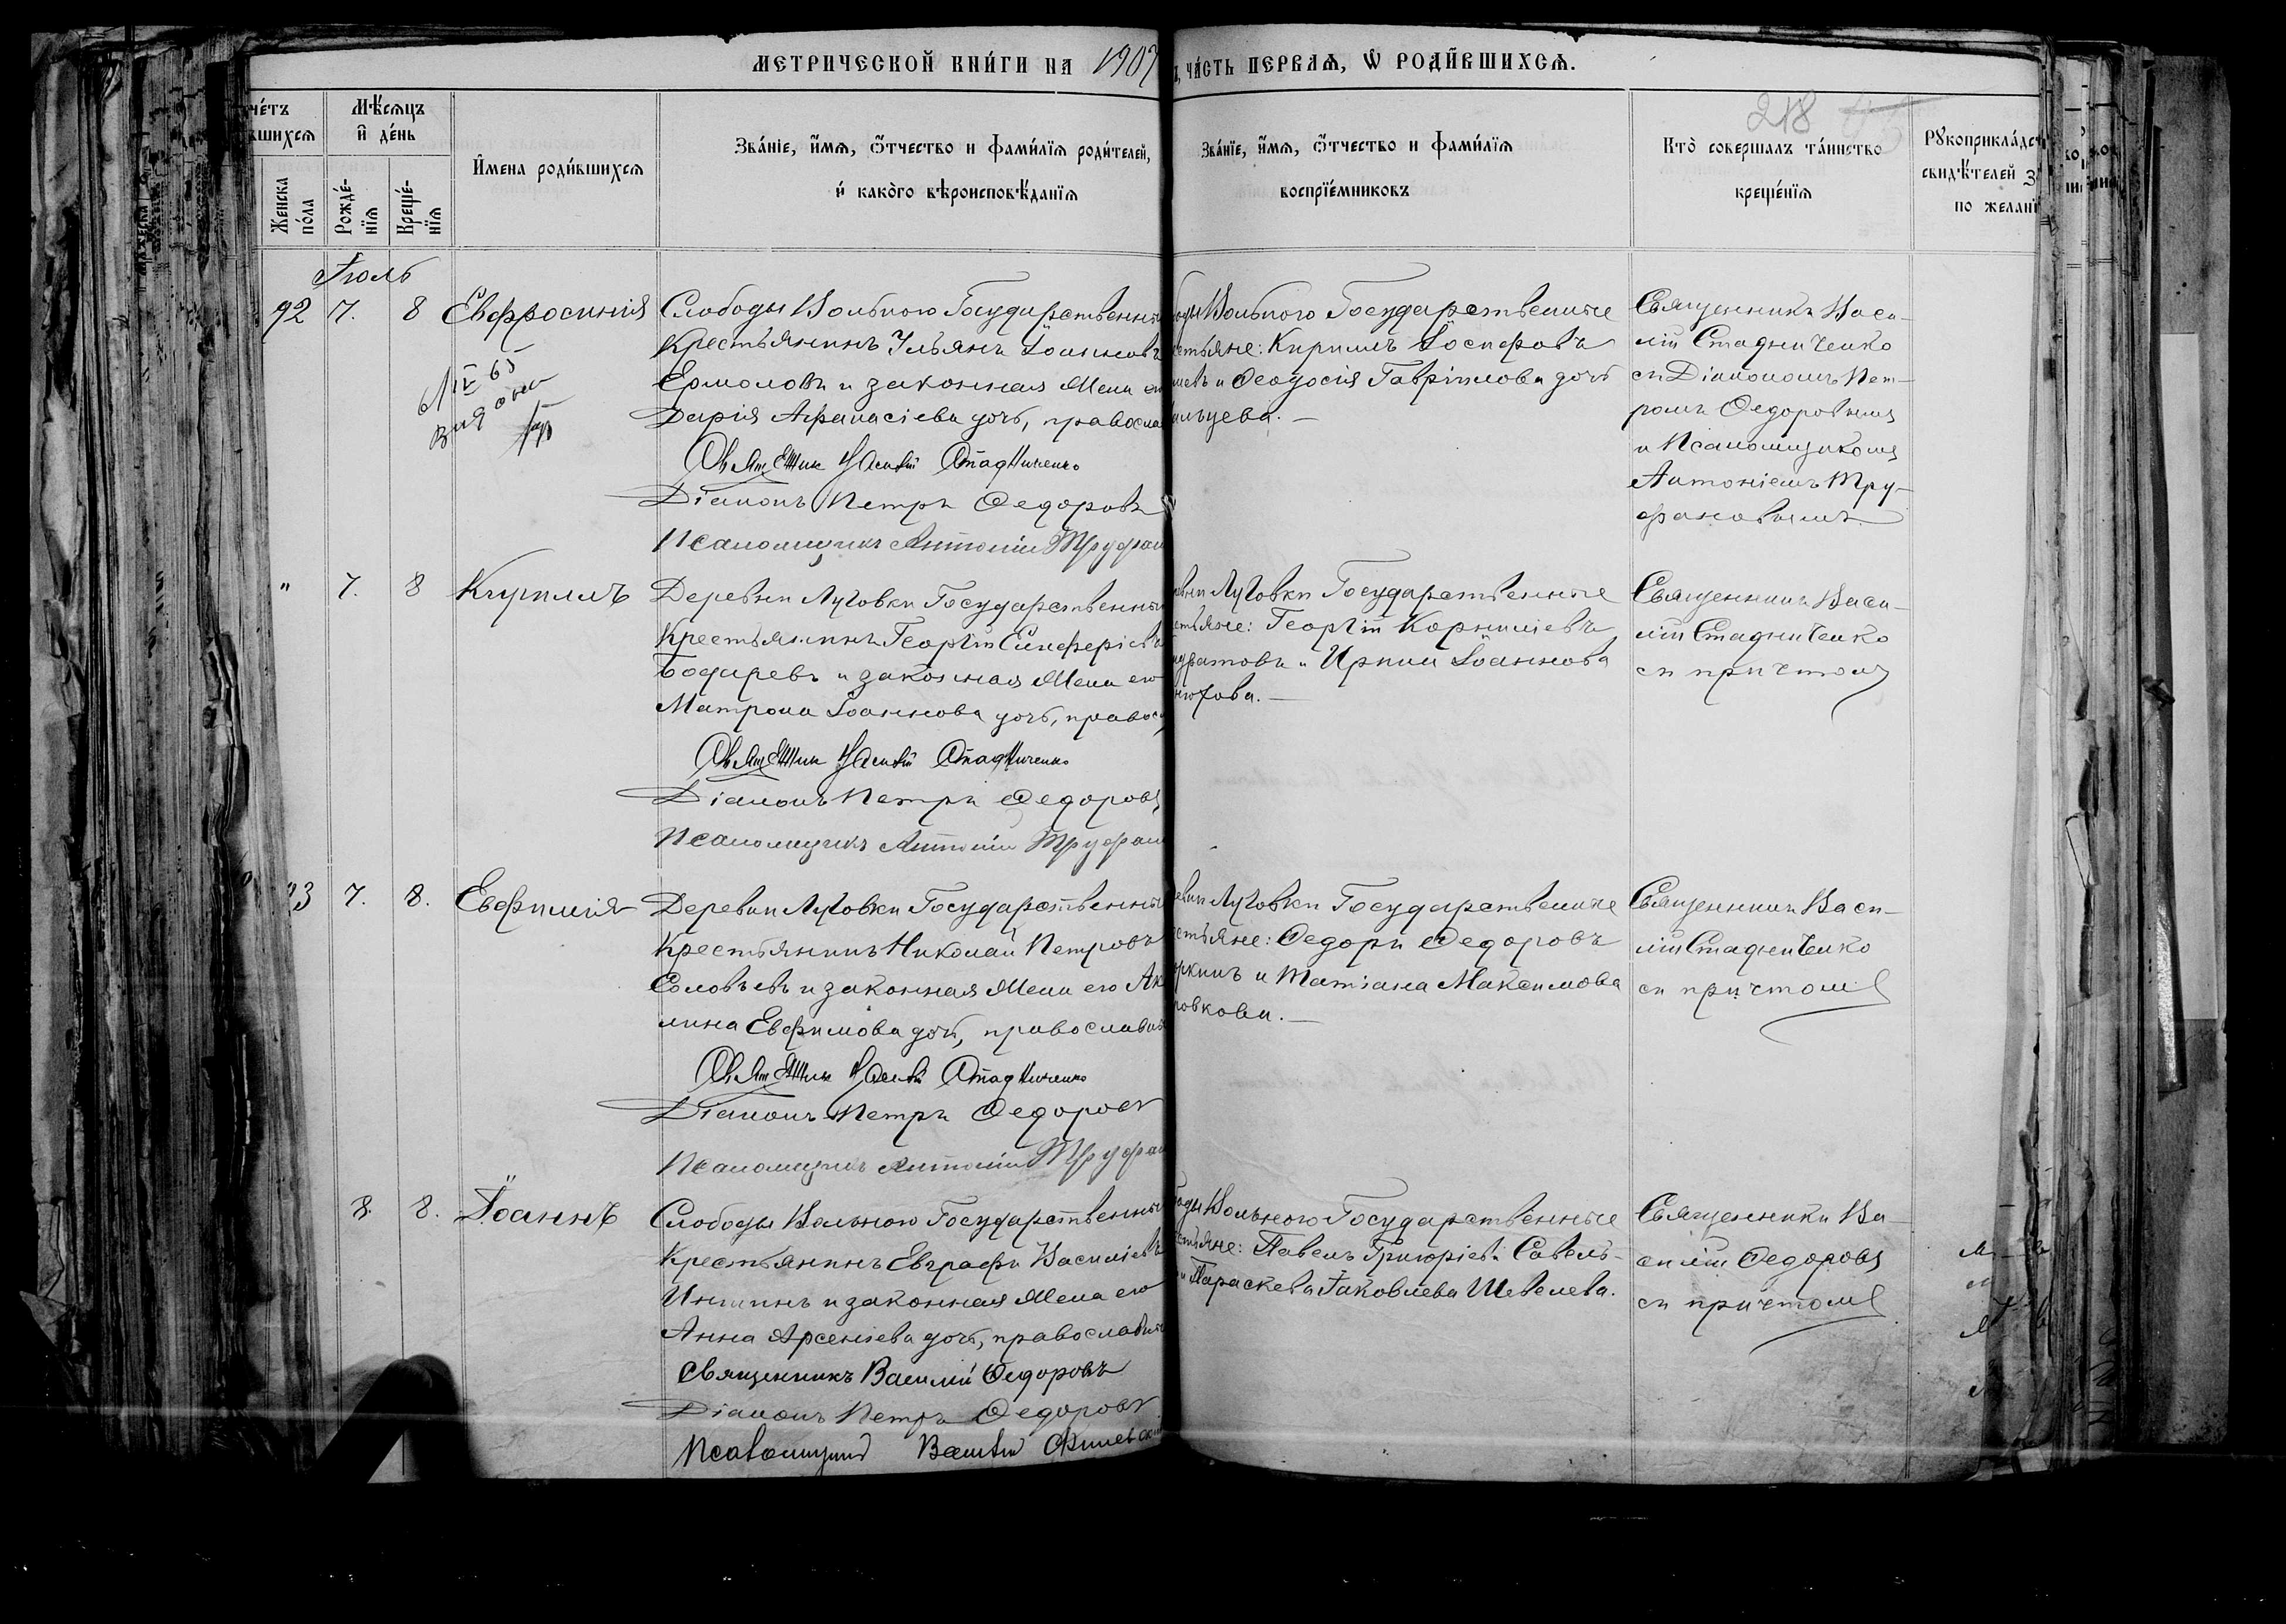 МЕТРИЧЕСКОЙ КНИ́ГИ НА 1907
ЧА́СТЬ ПЕРВАѦ, Ѡ РОДИ́ВШИХСѦ.
218
че́тъ
вшихсѧ
Женска по́ла
Мѣ́сѧцъ и҆ де́нь
Рожде́-нїѧ
Креще́-нїѧ
И҆мена роди́вшихсѧ
Зва́нїе, и҆́мѧ, ѻ҆́тчество и фами́лїѧ роди́телей,
и҆ како́гѡ вѣроисповѣ́данїѧ
Зва́нїе, и҆́мѧ, ѻ҆́тчество и фами́лїѧ
воспрїе́мниковъ
Кто̀ соверша́лъ та́инство
креще́нїѧ
Рꙋкоприкла́дс
свидѣ́телей
по жела́нї
Іюль
92 7. 8 Евфросинія
Слободы Вольного Государственный
Крестьянинъ Ульянъ Іоанновъ
Ермоловъ и законная Жена ею
Дарія Афанасіева дочь, правосла
Священникъ Василій Стадниченко
Діаконъ Петръ Федоровъ
Псаломщикъ Антоній Труфан
Вольного Государственные
стьяне: Кириллъ Іосифовъ
и Феодосія Гавріилова дочь
льцева.—
Священникъ Васи-
лій Стадниченко
съ Діакономъ Пет-
ромъ Федоровымъ
и Псаломщикомъ
Антоніемъ Тру-
фановымъ
" 7. 8 Кириллъ
Деревни Луговки Государственный
Крестьянинъ Георгій Елиферіевъ
Бодаревъ и законная Жена его
Матрона Іоаннова дочь, правос
Священникъ Василій Стадниченко
Діаконъ Петръ Федоровъ
Псаломщикъ Антоній Труфан
Луговки Государственные
стьяне: Георгій Корниліевъ
дратовъ и Ирина Іоаннова
нютова.—
Священникъ Васи-
лій Стадниченко
съ причтомъ
93 7. 8. Евфимія
Деревни Луговки Государственный
Крестьянинъ Николай Петровъ
Соловьевъ и законная Жена его Ак
лина Евфимова дочь, православны
Священникъ Василій Стадниченко
Діаконъ Петръ Федоровъ
Псаломщикъ Антоній Труфан
Луговки Государственные
стьяне: Федоръ Федоровъ
ркинъ и Татіана Максимова
ровкова.—
Священникъ Васи-
лій Стадниченко
съ причтомъ
8. 8. Іоаннъ
Слободы Вольною Государственный
Крестьянинъ Евграфъ Василіевъ
Иншинъ и законная Жена его
Анна Арсеніева дочь, православны
Священникъ Василій Федоровъ
Діаконъ Петръ Федоровъ
Псаломщикъ Василій
Вольного Государственные
стьяне: Павелъ Григоріевъ Савель-
и Параскева Іаковлева Шевелева.
Священникъ Ва-
силій Федоровъ
съ причтомъ